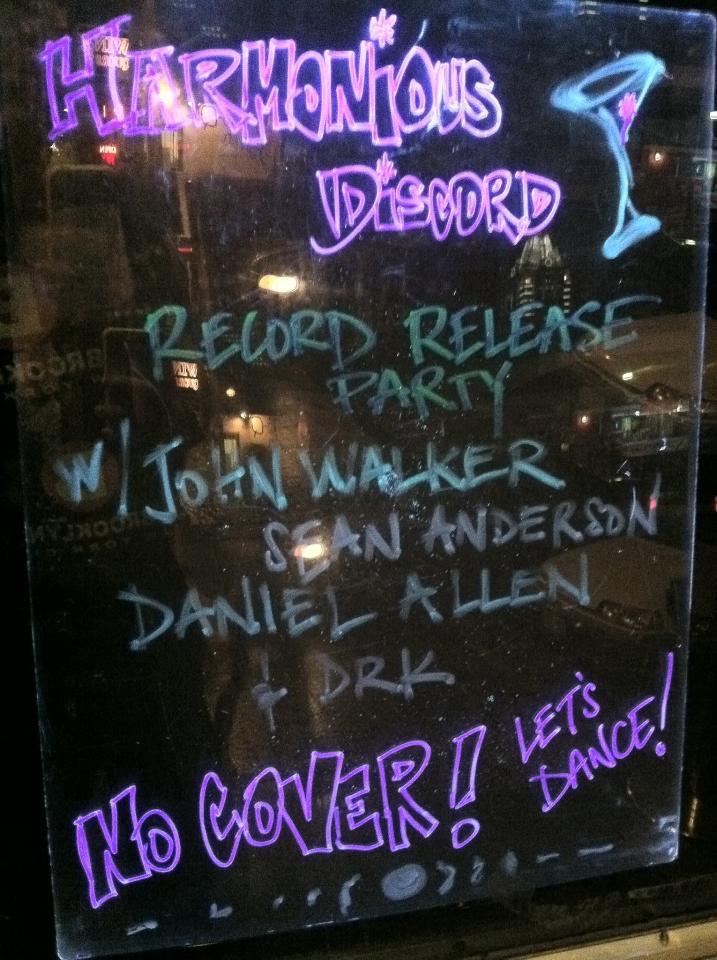 HARMONIOUS
DISCORD
RECORD RELEASE
PARTY
W/ JOHN WALKER
SEAN ANDERSON
DANIEL ALLEN
& DRK
NO COVER!
LET'S
DANCE!